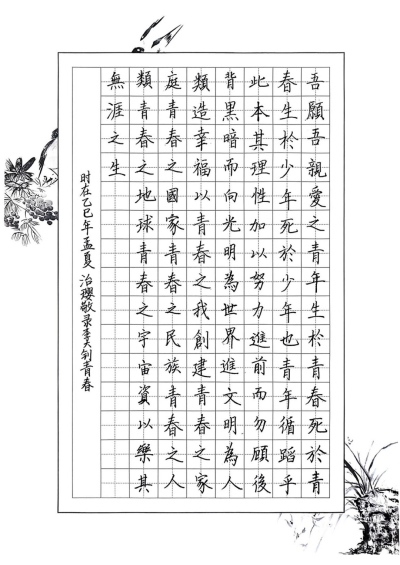 吾願吾親愛之青年生於青春死於青
春生於少年死於少年也青年循蹈乎
此本其理性加以努力進前而勿顧後
背黑暗而向光明為世界進文明為人
類造幸福以青春之我創建青春之家
庭青春之國家青春之民族青春之人
類青春之地球青春之宇宙資以樂其
無涯之生
时在乙巳年孟夏治璎敬录李大钊青春